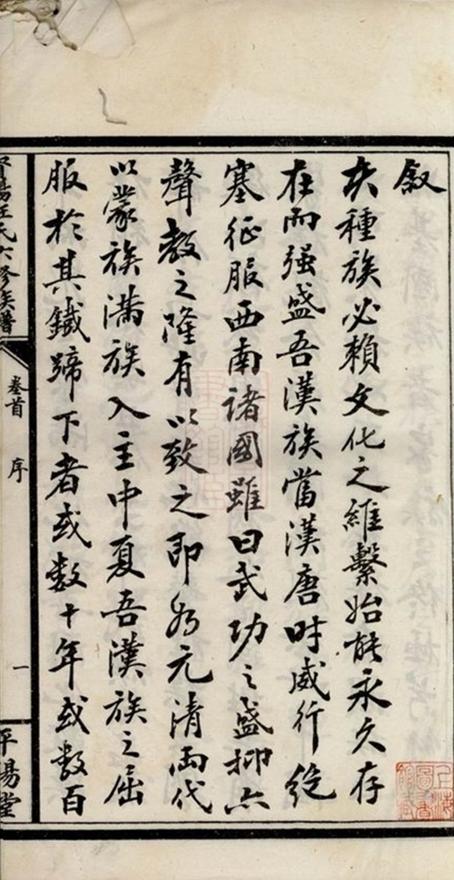 敘
夫種族必賴文化之維繫始能永久存
在而强盛吾漢族當漢唐時威行絕
塞征服西南諸國雖曰武功之盛抑亦
聲教之隆有以致之即如元清兩代
以蒙族滿族入主中夏吾漢族之屈
服於其鐵蹄下者或數十年或數百
汪氏六修族譜
卷首
序
一
平陽堂